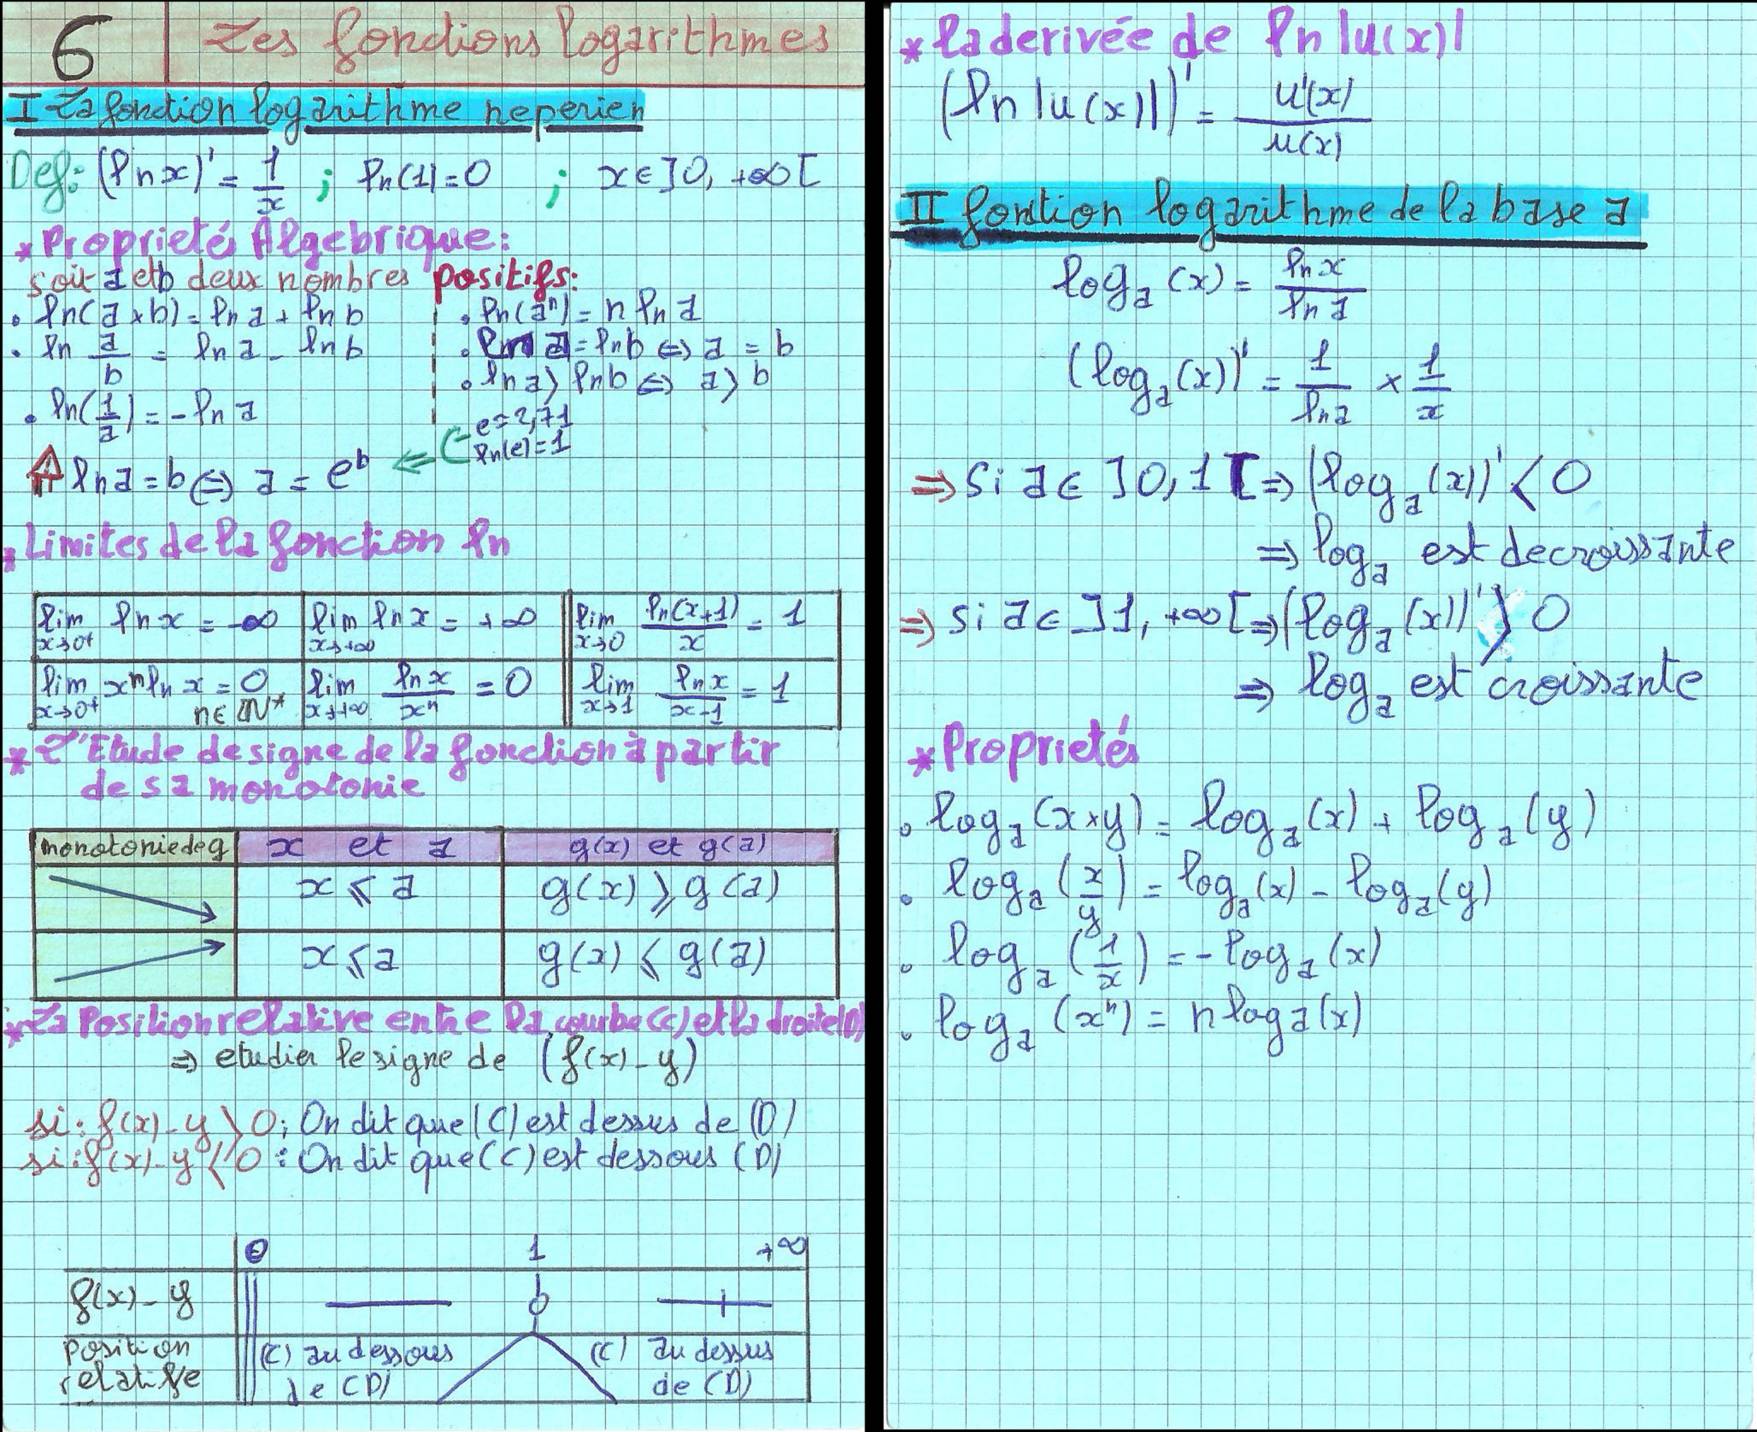 6 Les fonctions logarithmes
I La fonction logarithme neperien
Def: (ln x)' = 1/x ; ln(1) = 0 ; x ∈ ]0, +∞[
* Proprietés Algebrique:
soit a et b deux nombres positifs:
• ln(a × b) = ln a + ln b
• ln a/b = ln a - ln b
• ln(1/a) = - ln a
• ln(aⁿ) = n ln a
• ln a = ln b ⇔ a = b
• ln a > ln b ⇔ a > b
e = 2,71
ln(e) = 1
ln a = b ⇔ a = e^b ⇐
* Limites de la fonction ln
lim x→0⁺ ln x = -∞ | lim x→+∞ ln x = +∞ | lim x→0 ln(x+1)/x = 1
lim x→0⁺ xⁿ ln x = 0 n ∈ ℕ* | lim x→+∞ ln x/xⁿ = 0 | lim x→1 ln x/x-1 = 1
* L'Etude de signe de la fonction à partir
de sa monotonie
monotonie de g | x et a | g(x) et g(a)
x ⩽ a | g(x) ⩾ g(a)
x ⩽ a | g(x) ⩽ g(a)
* La Position relative entre la courbe (c) et la droite (D)
⇒ etudier le signe de (f(x) - y)
si: f(x) - y > 0; On dit que (C) est dessus de (D)
si: f(x) - y < 0 : On dit que (C) est dessous (D)
0 1 +∞
f(x) - y — 0 +
position relatife | (C) au dessous de (D) | (C) au dessus de (D)
* la derivée de ln |u(x)|
(ln |u(x)|)' = u'(x)/u(x)
II fontion logarithme de la base a
log_a (x) = ln x/ln a
(log_a (x))' = 1/ln a × 1/x
⇒ Si a ∈ ]0, 1[ ⇒ (log_a (x))' < 0
⇒ log_a est decroissante
⇒ si a ∈ ]1, +∞[ ⇒ (log_a (x))' > 0
⇒ log_a est croissante
* Proprietés
• log_a (x × y) = log_a (x) + log_a (y)
• log_a (x/y) = log_a (x) - log_a (y)
• log_a (1/x) = - log_a (x)
• log_a (xⁿ) = n log a (x)